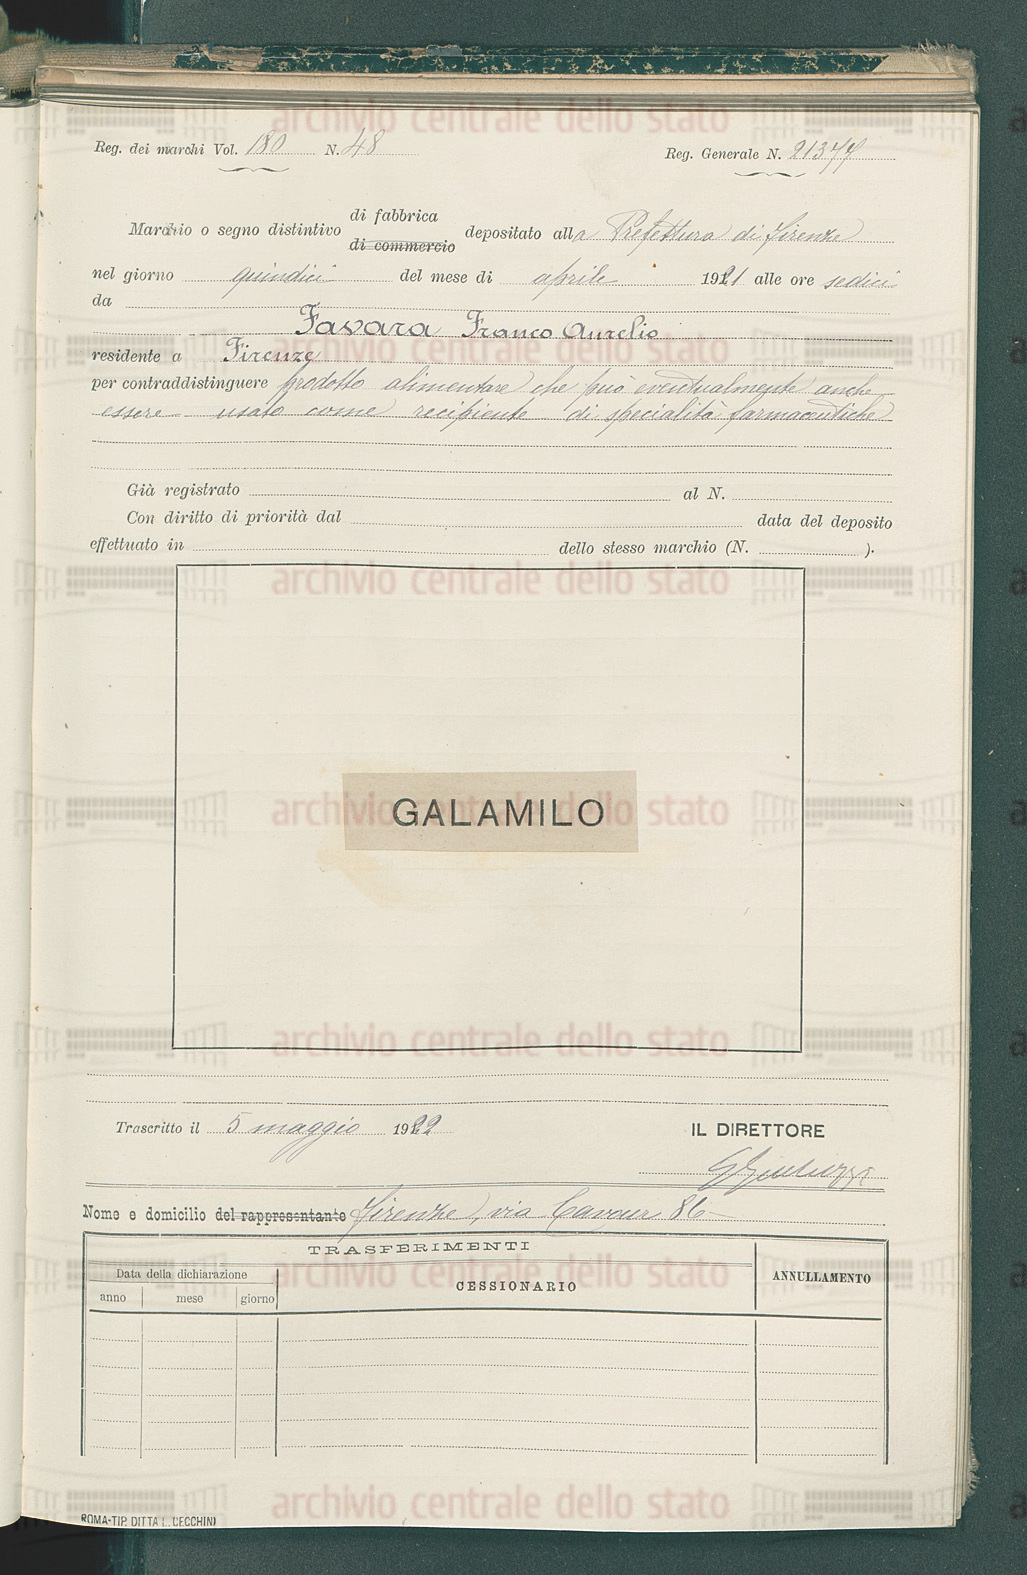 Reg. dei marchi Vol. 180 N. 48
Reg. Generale N. 21377
Marchio o segno distintivo di fabbrica di commercio depositato alla Prefettura di Firenze
nel giorno quindici del mese di aprile 1921 alle ore sedici
da
Favara Franco Aurelio
residente a Firenze
per contraddistinguere prodotto alimentare che può eventualmente anche
essere usato come recipiente di specialità farmaceutiche
Già registrato al N.
Con diritto di priorità dal data del deposito
effettuato in dello stesso marchio (N. ).
GALAMILO
Trascritto il 5 maggio 1922
IL DIRETTORE
Nome e domicilio del rappresentante Firenze, via Cavour 86
TRASFERIMENTI
Data della dichiarazione
CESSIONARIO
ANNULLAMENTO
anno mese giorno
ROMA-TIP. DITTA L. CECCHINI
archivio centrale dello stato
archivio centrale dello stato
archivio centrale dello stato
archivio centrale dello stato
archivio centrale dello stato
archivio centrale dello stato
archivio centrale dello stato